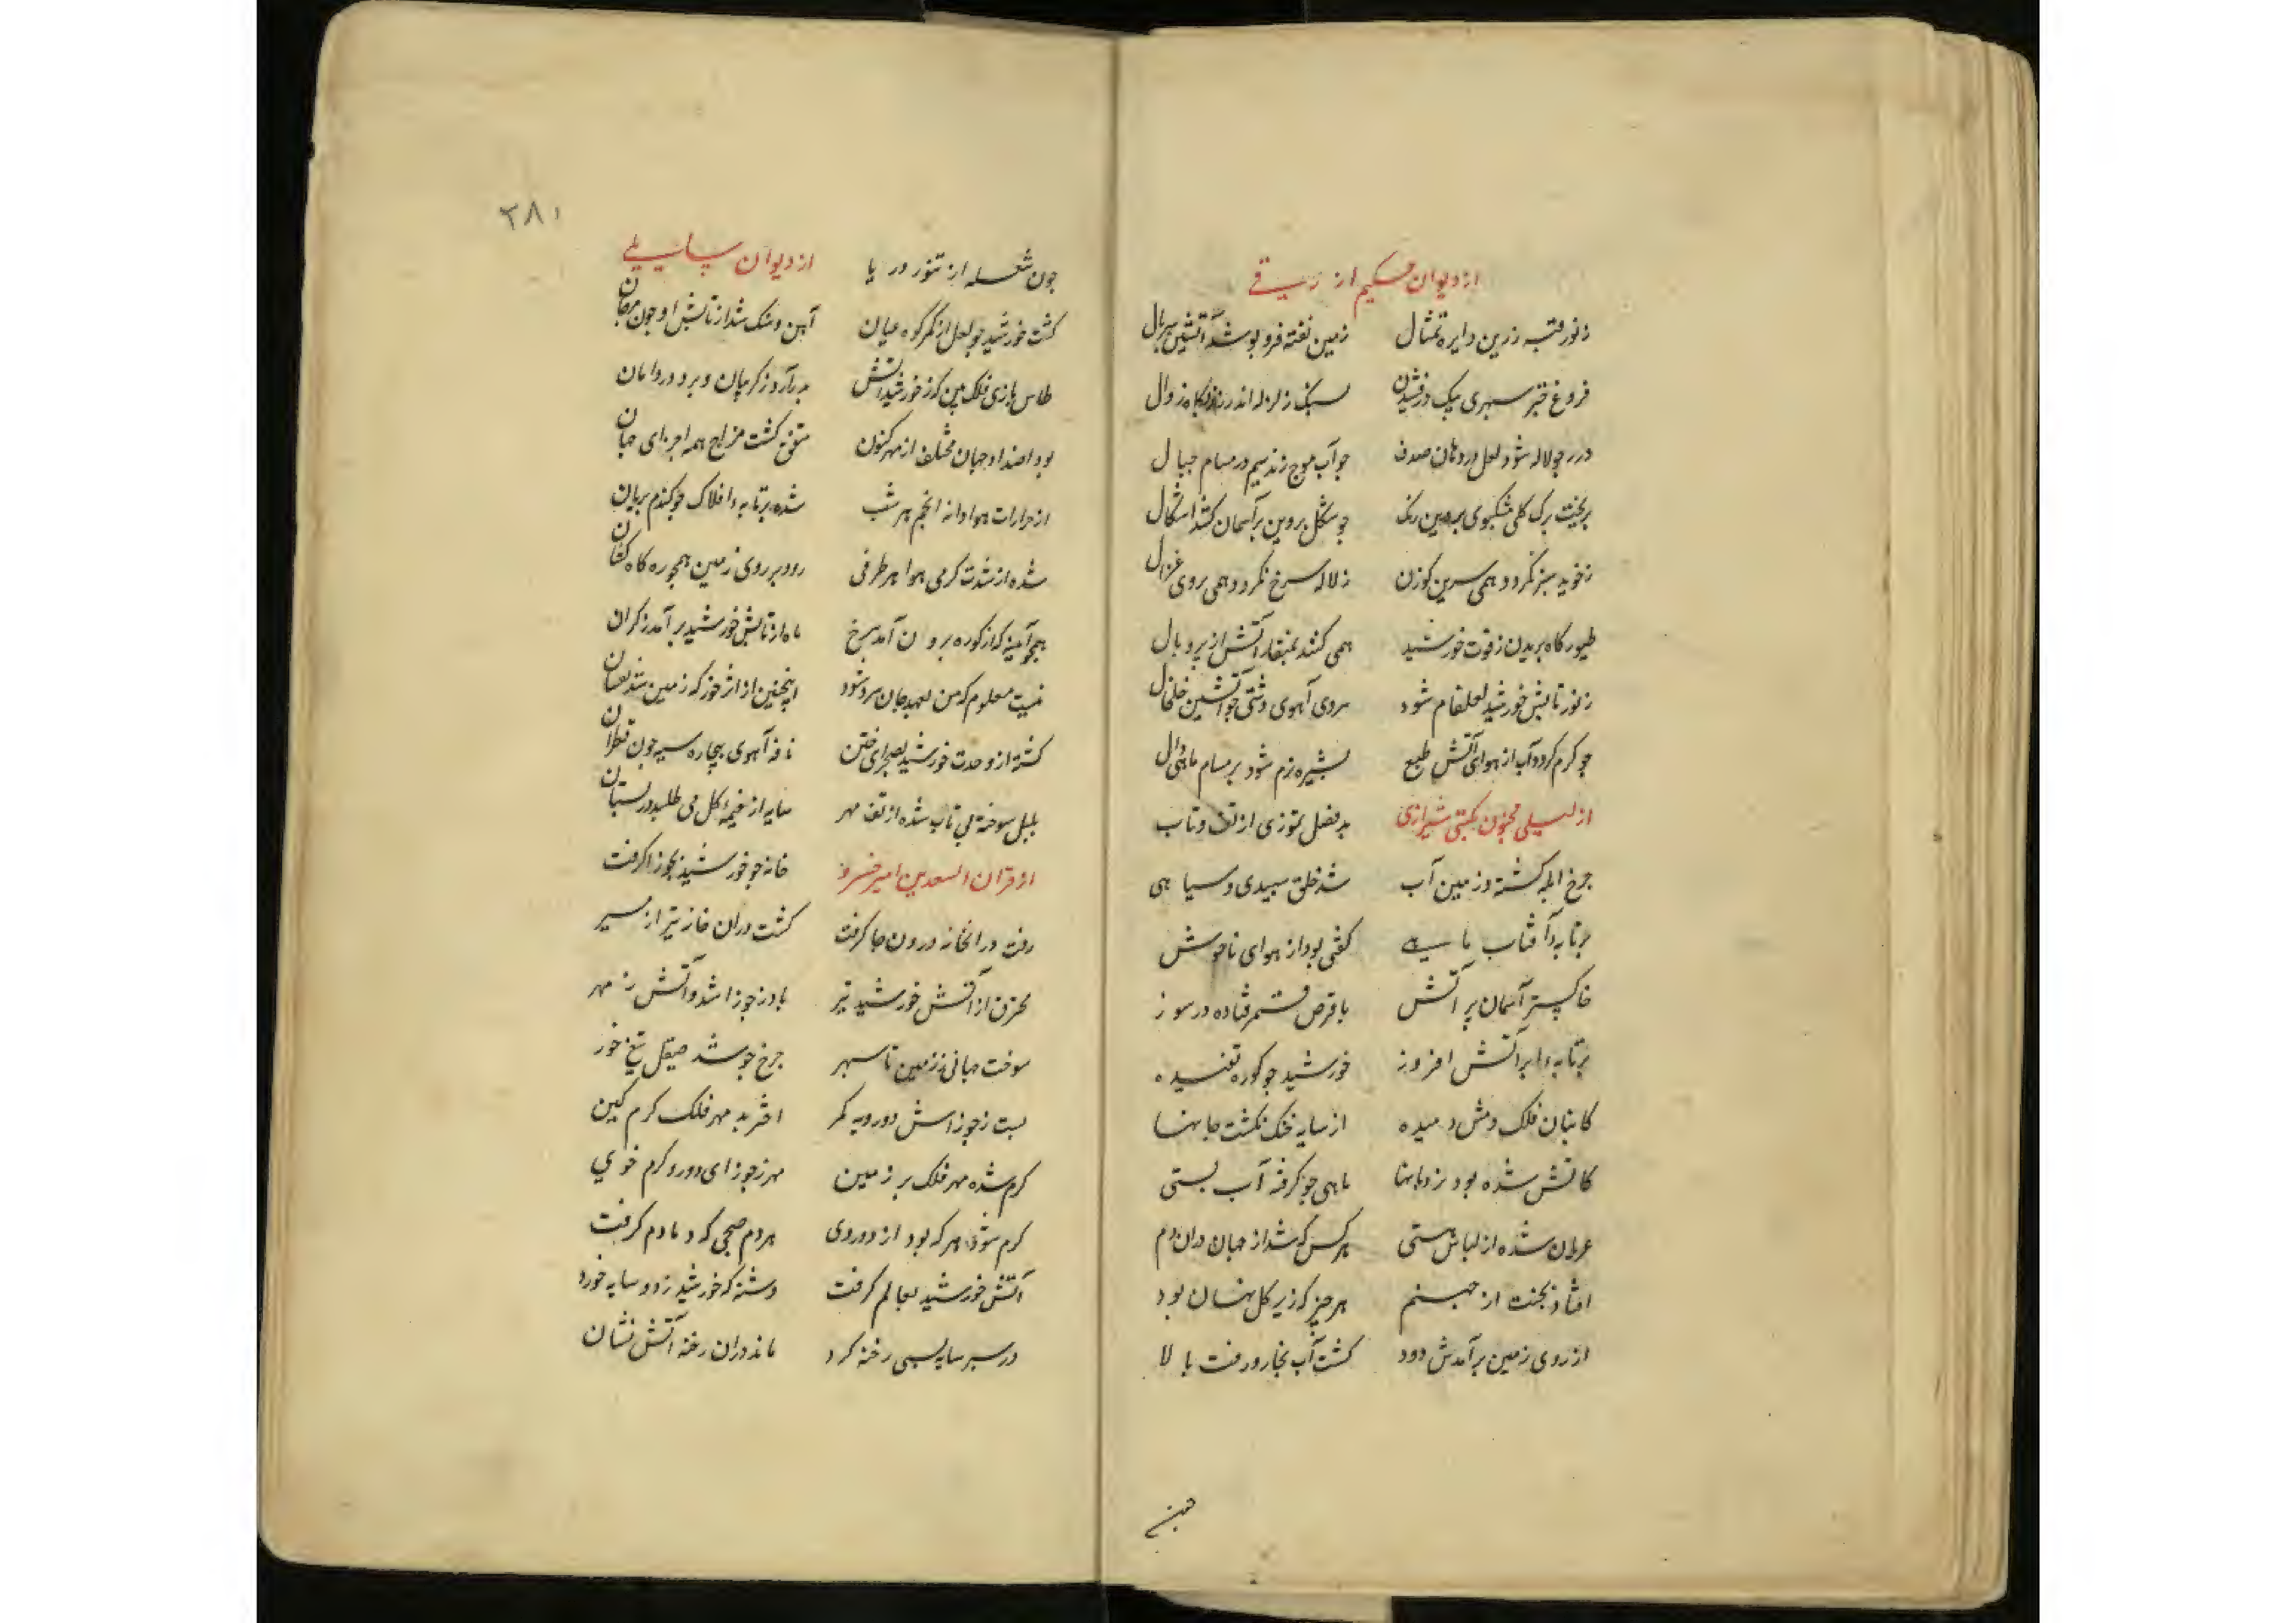 از دیوان حکیم ازرقی
ز نور قبه زرین دایره تمثال زمین تفته فرو پوشد آتشین سربال
فروغ سپهری بیک درفشیدن بسنگ زلزله اندر زوال
درر چو لاله شود لعل در دهان صدف چو آب موج زند سیم در مسام جبال
بریخت برک کل مشکبوی پروین رنک چو شکل پروین بر آسمان کشد اشکال
ز خوید سبز نکردد همی سرین کوزن ز لاله سرخ نکردد همی روی غزال
طیور کاه پریدن ز قوت خورشید همی کنند بمنقار آتش از پر و بال
ز نور تابش خورشید لعلفام شود سروی آهوی دشتی چو آتشین خلخال
چو کرم کردد آب از هوای آتش طبع بشیزه نرم شود بر مسام ماهی وال
از لیلی مجنون مکتبی شیرازی در فصل تموزی از تف و تاب
چرخ ابله کشته و زمین آب شد خلق سپیدی و سیاهی
برتابه آفتاب ماهی کفتی بود از هوای ناخوش
خاکستر آسمان پر آتش با قرص قمر فتاده در سوز
برتابه ابر آتش افروز خورشید چو کوره تفسیده
کانبان فلک دمش دمیده از سایه خنک نکشت جانها
کاتش شده بود زدهانها ماهی چو کرفته آب بستی
عریان شده از لباس هستی هر کس که شد از جهان دران دم
افتاد بجنت از جهنم هر چیز که زیر کل نهان بود
از روی زمین برآمدش دود کشت آب بخار و رفت بالا
چون شعله از تنور دریا از دیوان
کشت خورشید چو لعل از کمر کوه میان آهن و سنک شد از تابش او چون مرجان
طاس بازی فلک بین که ز خورشید آتش بر آرد ز کریبان و برد در دامان
بود اضداد جهان مختلف از مهر کنون متفق کشت مزاج همه اجزای جهان
از حرارات هوا دانه انجم هر شب شده برتابه افلاک چو کندم بریان
شده از شدت کرمی هوا هر طرفی رود بر روی زمین همچو ره کاه کشان
همچو آیینه که از کوره برون آمد سرخ ماه از تابش خورشید بر آمد ز کران
نیست معلوم که من بعد جهان سرد شود اینچنین از اثر خور که زمین شد تفسان
کشته از وحدت خورشید بصحرای ختن نافه آهوی بیچاره سیه چون قطران
بلبل سوخته بی تاب شده از تف مهر سایه از خیمه کل می طلبد در بستان
از قران السعدین امیر خسرو خانه چو خورشید بجوزا کرفت
رفت در آن خانه درون جا کرفت کشت دران خانه تیر از مسیر
محترق از آتش خورشید تیر باد ز جوزا شد و آتش ز مهر
سوخت جهانی ز زمین تا سپهر چرخ چو شد صیقل تیغ خور
بست ز جوزاش دو رویه کمر اختر بد مهر فلک کرم کین
کرم شده مهر فلک بر زمین مهر ز جوزای دو رو کرم خوی
کرم شود هر که بود از دو روی هر دم صبحی که دمادم کرفت
آتش خورشید بعالم کرفت دشنه که خورشید زد و سایه خورد
در سپر سایه بسی رخنه کرد ماند دران رخنه آتش نشان